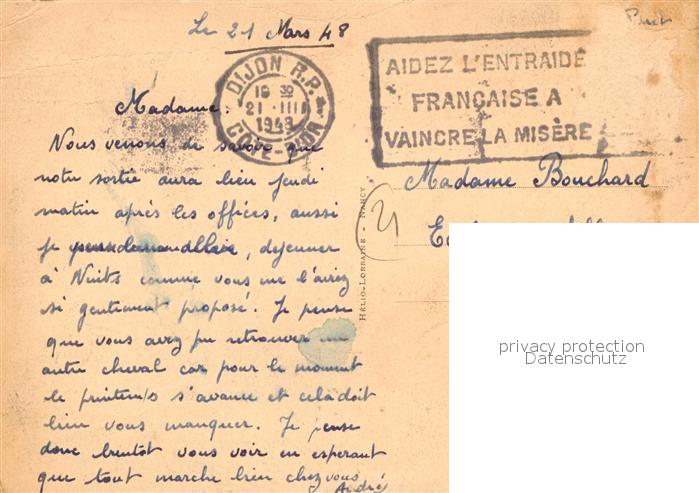 Le 21 Mars 48
DIJON R.P.
19 30
21 - III
1948
CÔTE-D'OR
AIDEZ L'ENTRAIDE
FRANÇAISE A
VAINCRE LA MISÈRE
Madame.
Nous venons de savoir que
notre sortie aura lieu jeudi
matin après les offices, aussi
je, dejeuner
à Nuits comme vous me l'aviez
si gentiment proposé. Je pense
que vous avez pu retrouver un
autre cheval car pour le moment
le printemps s'avance et cela doit
bien vous manquer. Je pense
donc bientot vous voir en esperant
que tout marche bien chez vous
André
HÉLIO-LORRAINE - NANCY
Madame Bouchard
privacy protection
Datenschutz